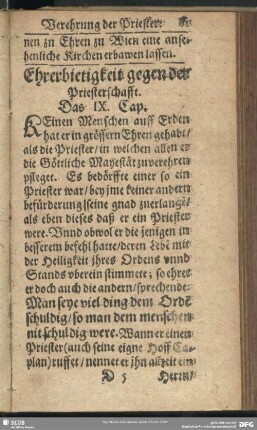 Verehrung der Priester.
nen zu Ehren zu Wien eine anse-
henliche Kirchen erbawen lassen.
Ehrerbietigkeit gegen der
Priesterschafft.
Das IX. Cap.
KEinen Menschen auff Erden
hat er in grössern Ehren gehabt/
als die Priester/ in welchen allen er
die Göttliche Mayestät zuverehren
pfleget. Es bedörffte einer so ein
Priester war/ bey jme keiner andern
befürderung seine gnad zuerlangē/
als eben dieses daß er ein Priester
were. Vnnd obwol er die jenigen in
besserem befehl hatte/ deren Lebē mit
der Heiligkeit jhres Ordens vnnd
Stands vberein stimmete; so ehret
er doch auch die andern/ sprechende:
Man seye viel ding dem Ordē
schuldig/ so man dem menschen
nit schuldig were. Wann er einem
Priester (auch seine eigne Hoff Ca-
plan) ruffet/ nennet er jhn alzeit ein
D 5 Herrn/
SLUB
DFG